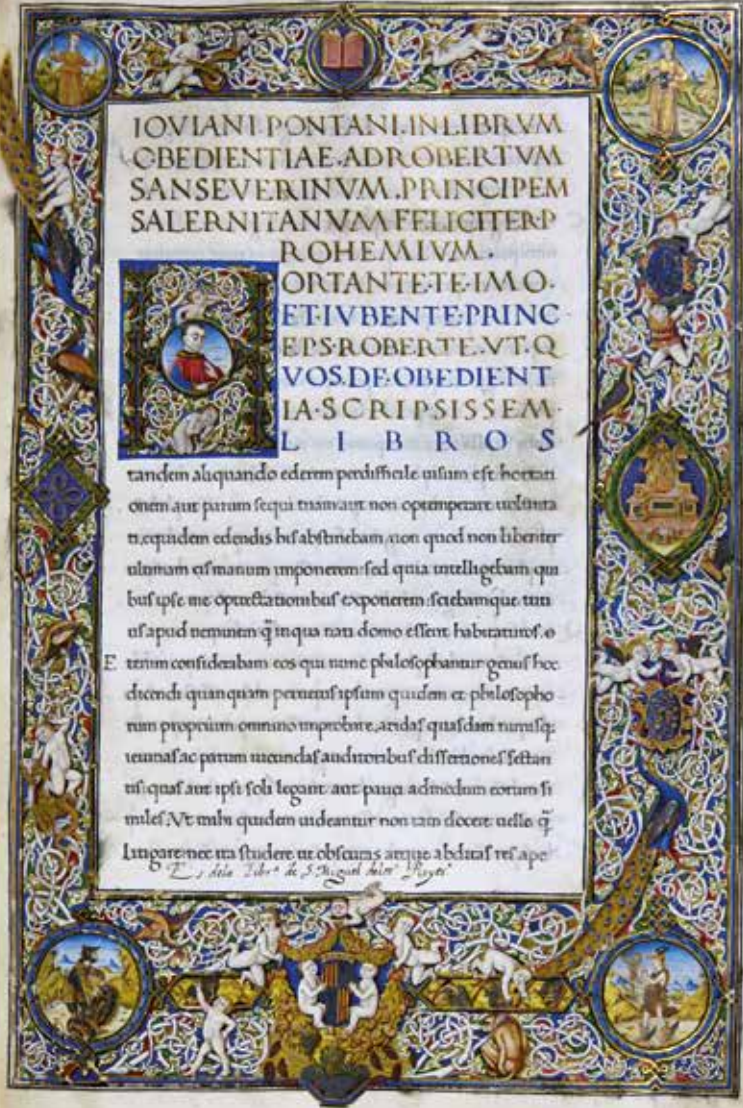 IOVIANI·PONTANI·IN LIBRVM
OBEDIENTIAE·AD ROBERTVM
SANSEVERINVM·PRINCIPEM
SALERNITANVM FELICITER P
ROHEMIVM·
ORTANTE·TE·IMO·
ET·IVBENTE·PRINC
EPS·ROBERTE·VT·Q
VOS·DE·OBEDIENT
IA·SCRIPSISSEM·
LIBROS
tandem aliquando ederem perdifficile uisum est hortati
onem aut parum sequi tuam aut non optemperare uolunta
ti, equidem edendis his abstinebam, non quod non libenter
ultimam eis manum imponerem: sed quia intelligebam qui
bus ipse me optrectationibus exponerem: sciebamque tuti
us apud neminem q̃ in qua nati domo essent habitaturos. e
E tenim considerabam eos qui nunc philosophantur genus hoc
dicendi quanquam peruetus ipsum quidem et philosopho
rum proprium omnino improbare, aridas quasdam nimisq;
ieiunas ac parum iucundas auditoribus dissertiones sectan
tis: quas aut ipsi soli legant aut pauci admodum eorum si
miles. Vt mihi quidem uideantur non tam docere uelle q̃
litigare nec ita studere ut obscuras atque abditas res ape
Es dela Libr.ª de S. Miguel delos Reyes